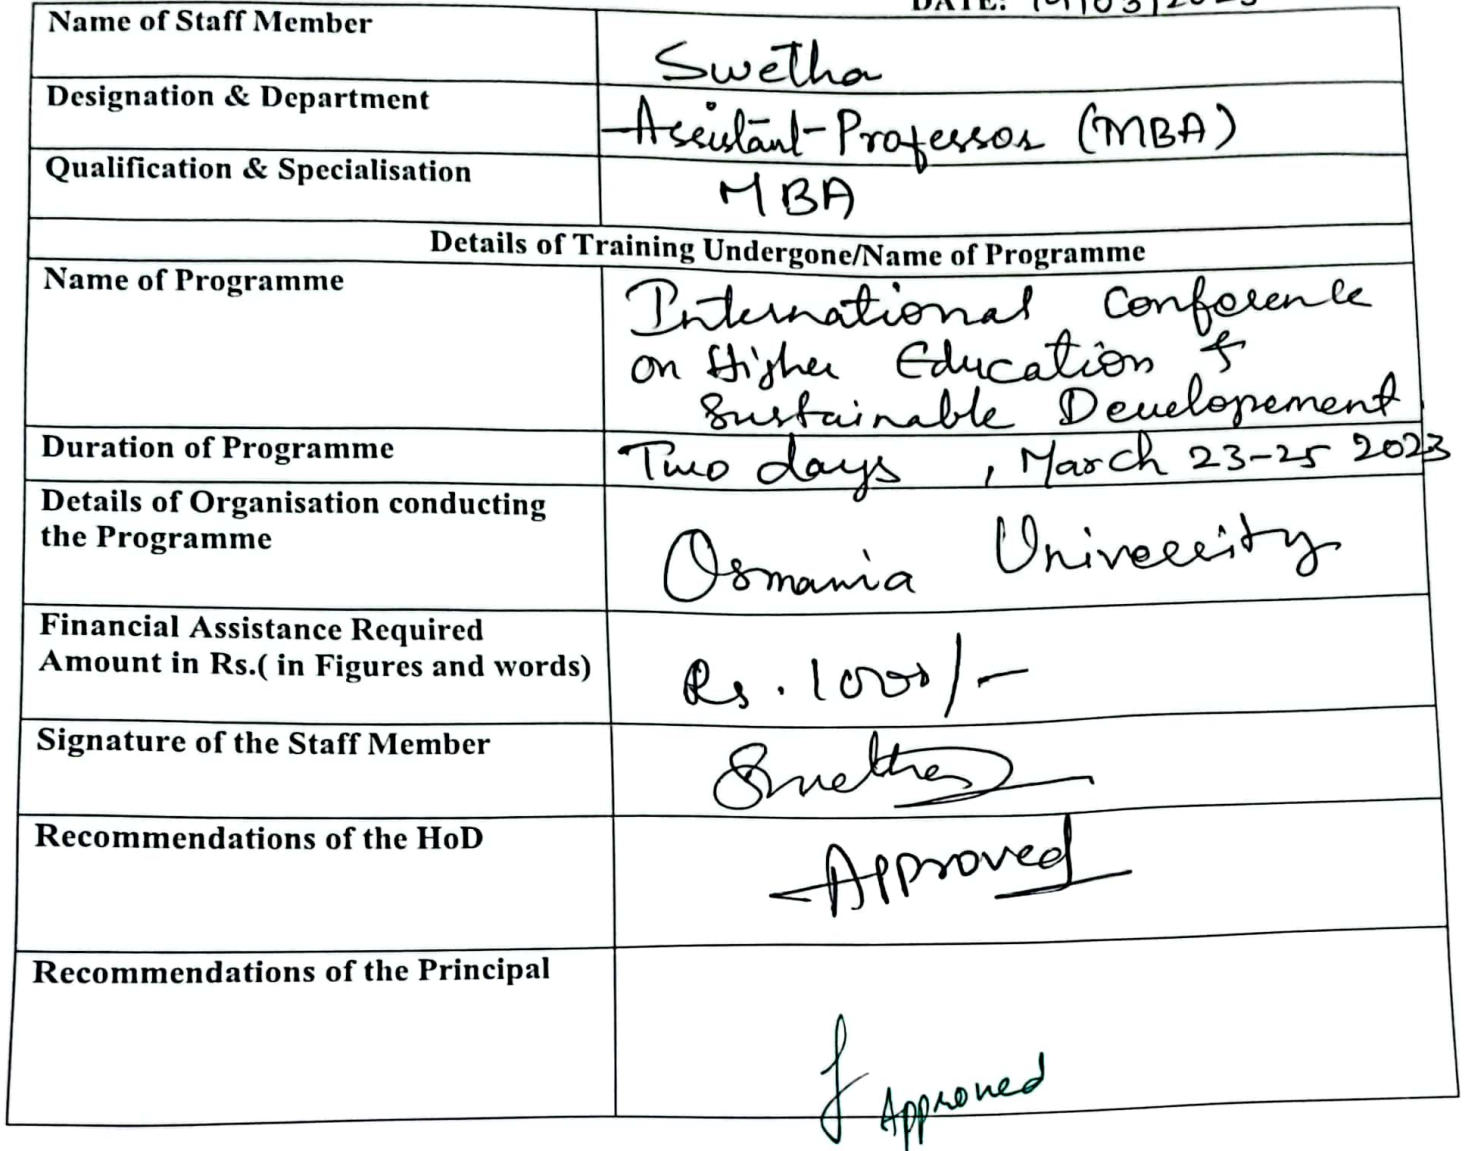 Name of Staff Member
Swetha
Designation & Department
Assistant Professor (MBA)
Qualification & Specialisation
MBA
Details of Training Undergone/Name of Programme
Name of Programme
International Conference
on Higher Education &
Sustainable Developement
Duration of Programme
Two days , March 23-25 2023
Details of Organisation conducting
the Programme
Osmania University
Financial Assistance Required
Amount in Rs.( in Figures and words)
Rs. 1000/-
Signature of the Staff Member
Swetha
Recommendations of the HoD
Approved
Recommendations of the Principal
Approved